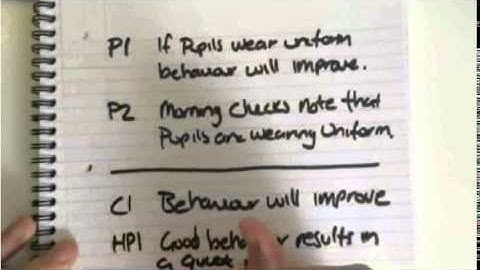 P1 If Pupils wear uniform
behaviour will improve.
P2 Morning Checks note that
Pupils are wearing Uniform.
C1 Behaviour will improve
HP1 Good behaviour results in
a